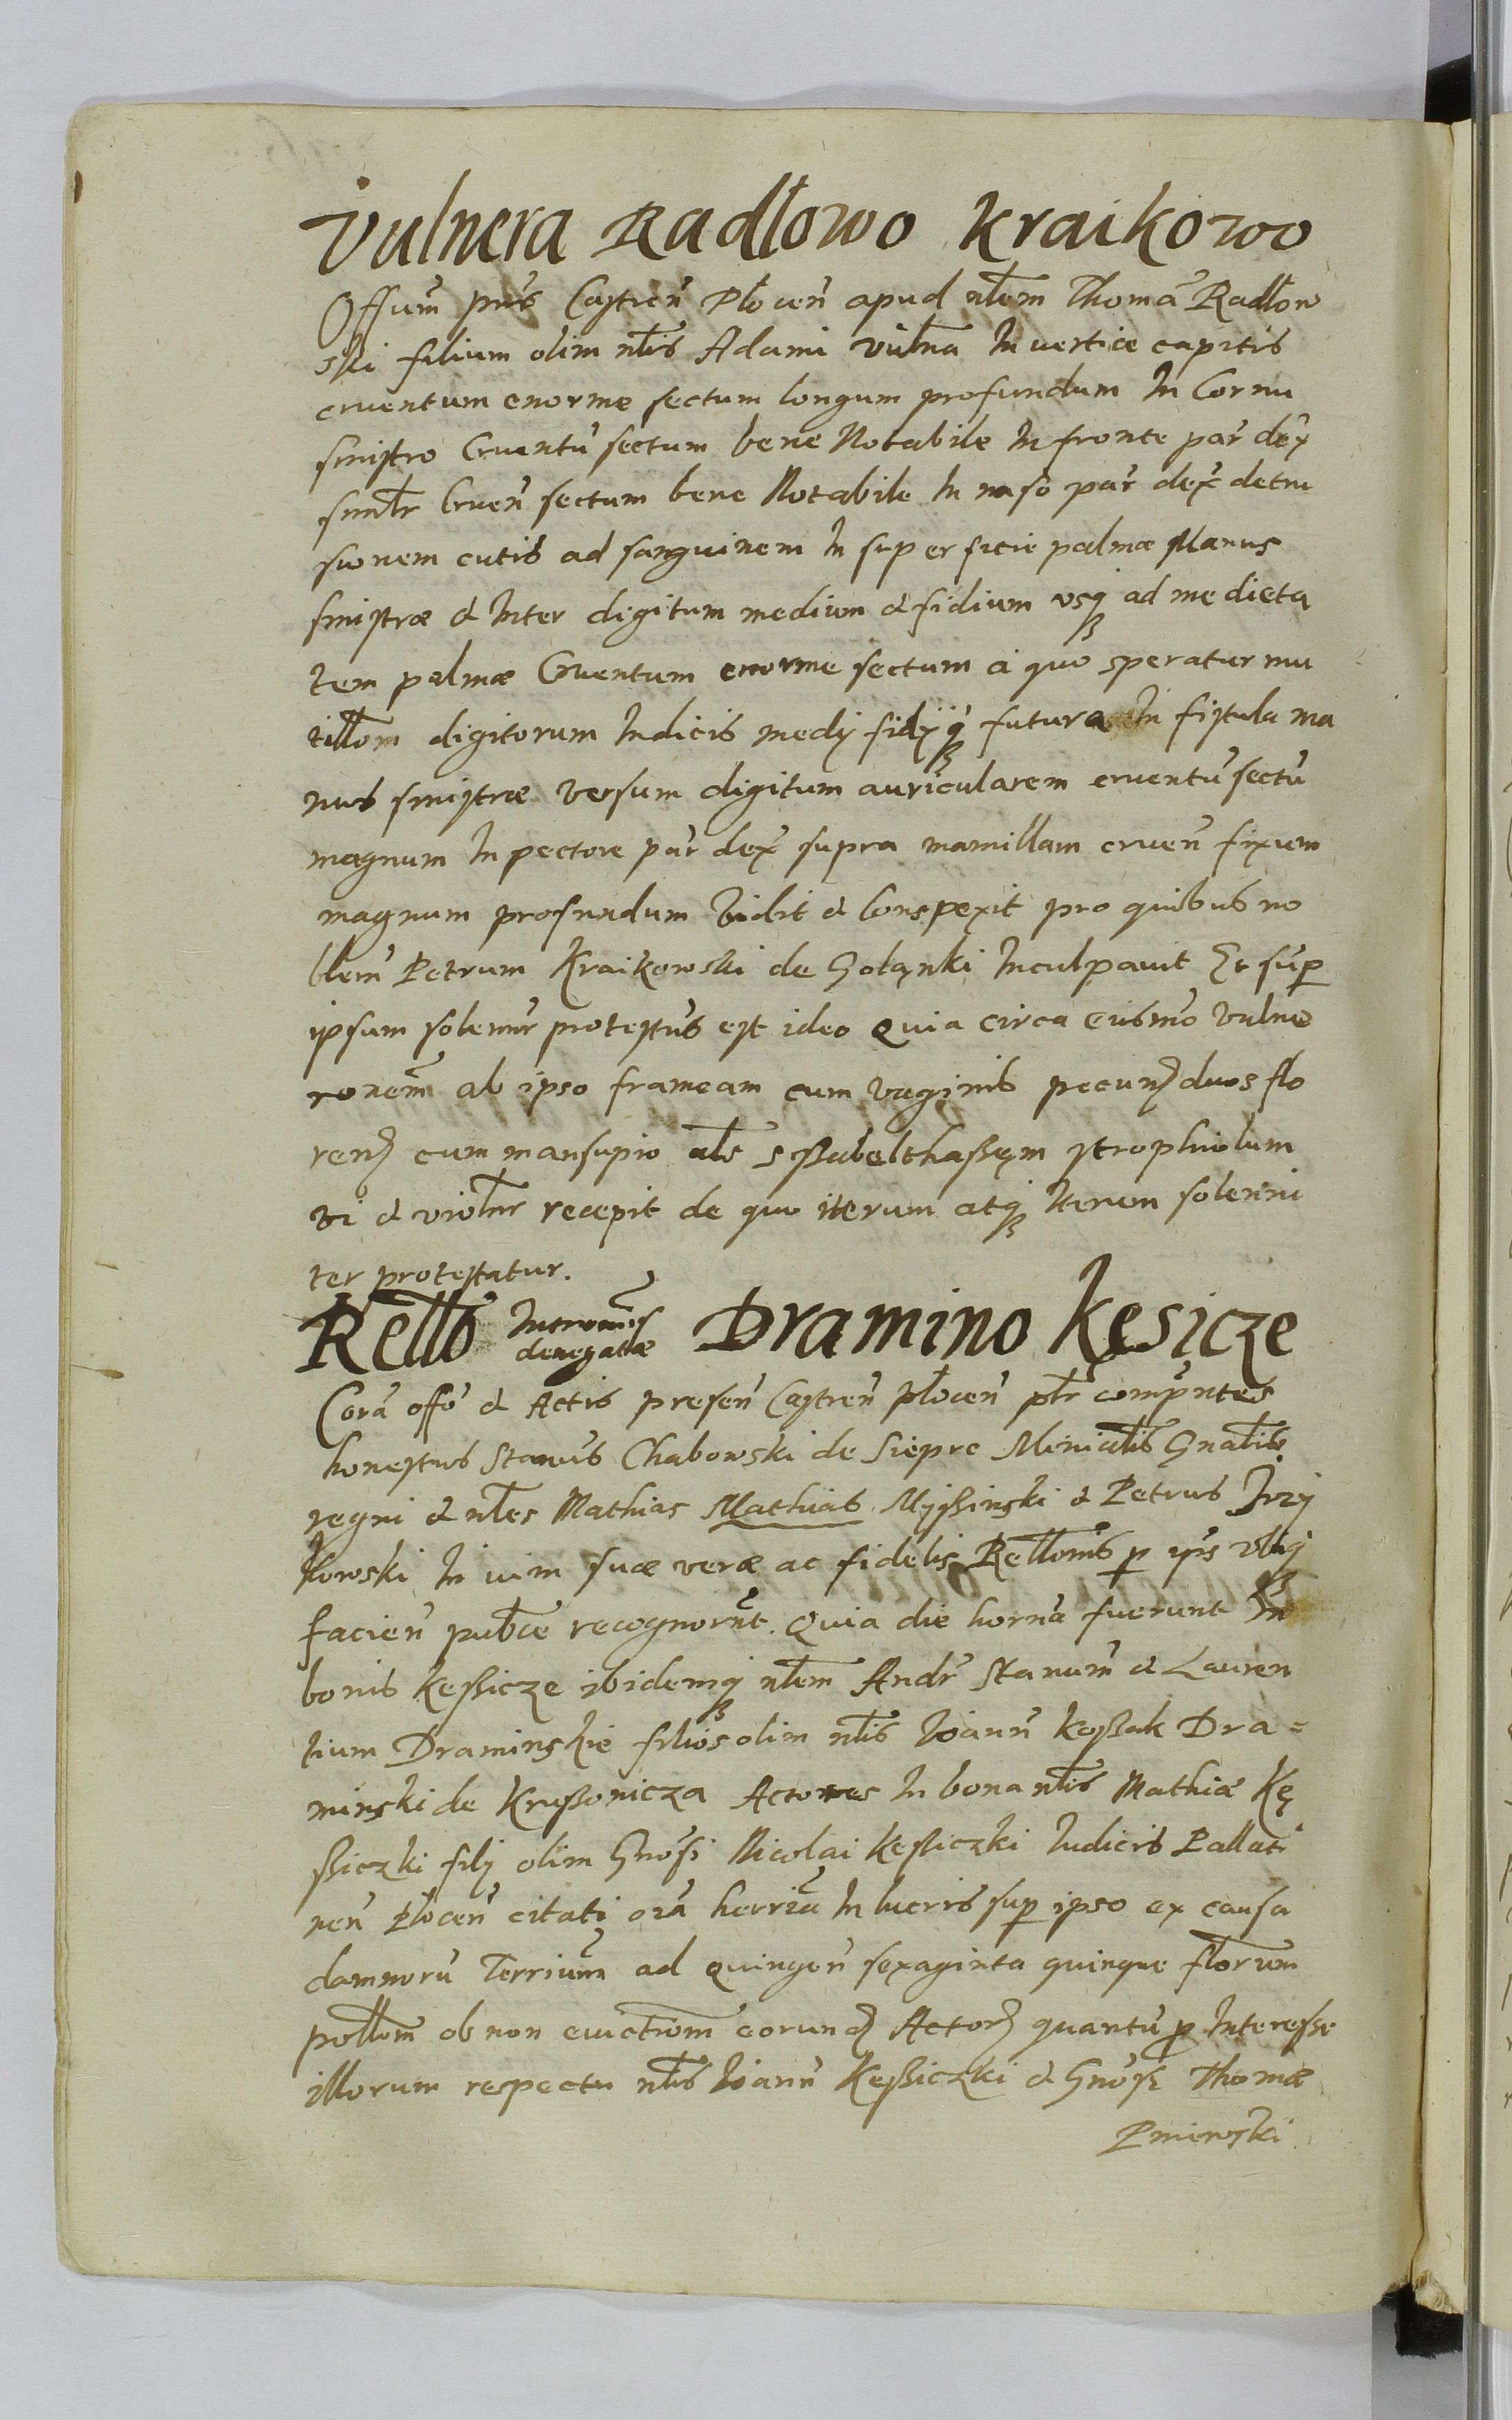 Vulnera Radłowo Kraikowo
Offium pns Castren Płocen apud nlem Thomā Radłow
ski filium olim nlis Adami vulna In vertice capitis
cruentum enorme sectum longum profundum In Cornu
sinistro Cruentū sectum bene Notabile In fronte par dex
simlr Cruen sectum bene Notabile In naso par dex detru
sionem cutis ad sanguinem In superficie palmæ Manus
sinistræ & Inter digitum medium & fidium usq ad medieta
tem palmæ Cruentum enorme sectum a quo speratur mu
tillom digitorum Indicis medij fidijq futura In fistula ma
nus sinistræ versum digitum auricularem cruentū sectū
magnum In pectore par dex supra mamillam cruen fixum
magnum profundum Vidit & Conspexit pro quibus no
blem Petrum Kraikowski de Gołąnki Inculpavit Et sup
ipsum solemnr protestus est ideo Quia circa eiusmo vulne
ronem ab ipso frameam cum vaginis pecun duos flo
ren cum marsupio als s strophiolum
vi & violnr recepit de quo iterum atq Iterum solenni
ter protestatur.
Rello Intromis denegatæ Dramino Kęsicze
Corā offo & Actis presen Castren Płocen plr compntes
honestus Stanus Chabowski de Siepre Minialis Gnalis
regni & nles Mathias Mathias Myßinski & Petrus
kowski In vim suæ veræ ac fidelis Rellonis p ips
facien publce recognornt. Quia die horna fuerunt In
bonis Keßicze ibidemq nlem Andr Stanum & Lauren
tium Draminskie filios olim nlis Ioann Koßak Dra=
minski de Krußonicza Actores In bona nlis Mathiæ Kę
ßiczki filij olim Gnosi Nicolai Keßiczki Iudicis Pallati
nen Płocen citati In lucris sup ipso ex causa
damnorū Terrium ad quingen sexaginta quinque florum
pollom ob non euictionem eorund Actor quantū p Interesse
illorum respectu nlis Ioann Keßiczki & Gnosi Thomæ
Pniewski